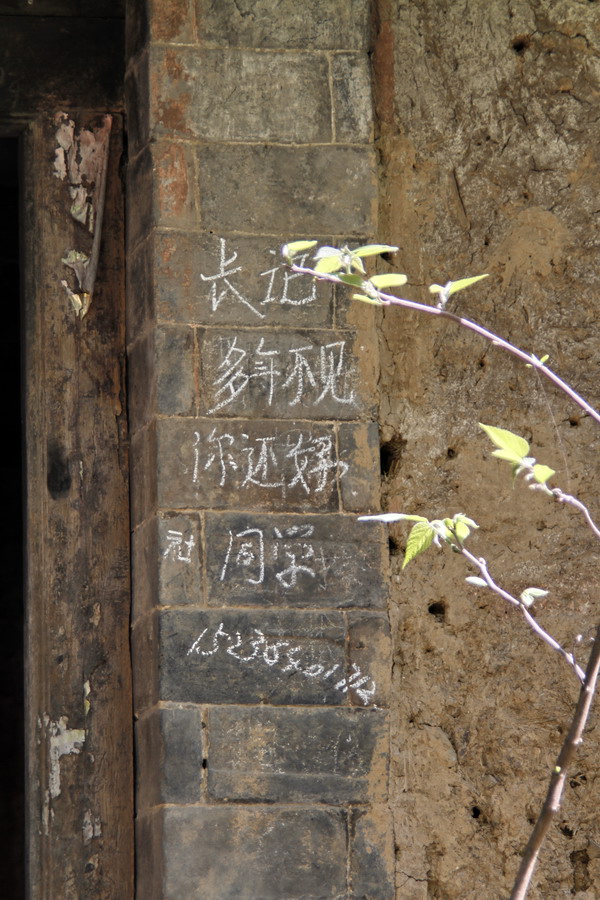 长记
多年不见
你还好
社 同学